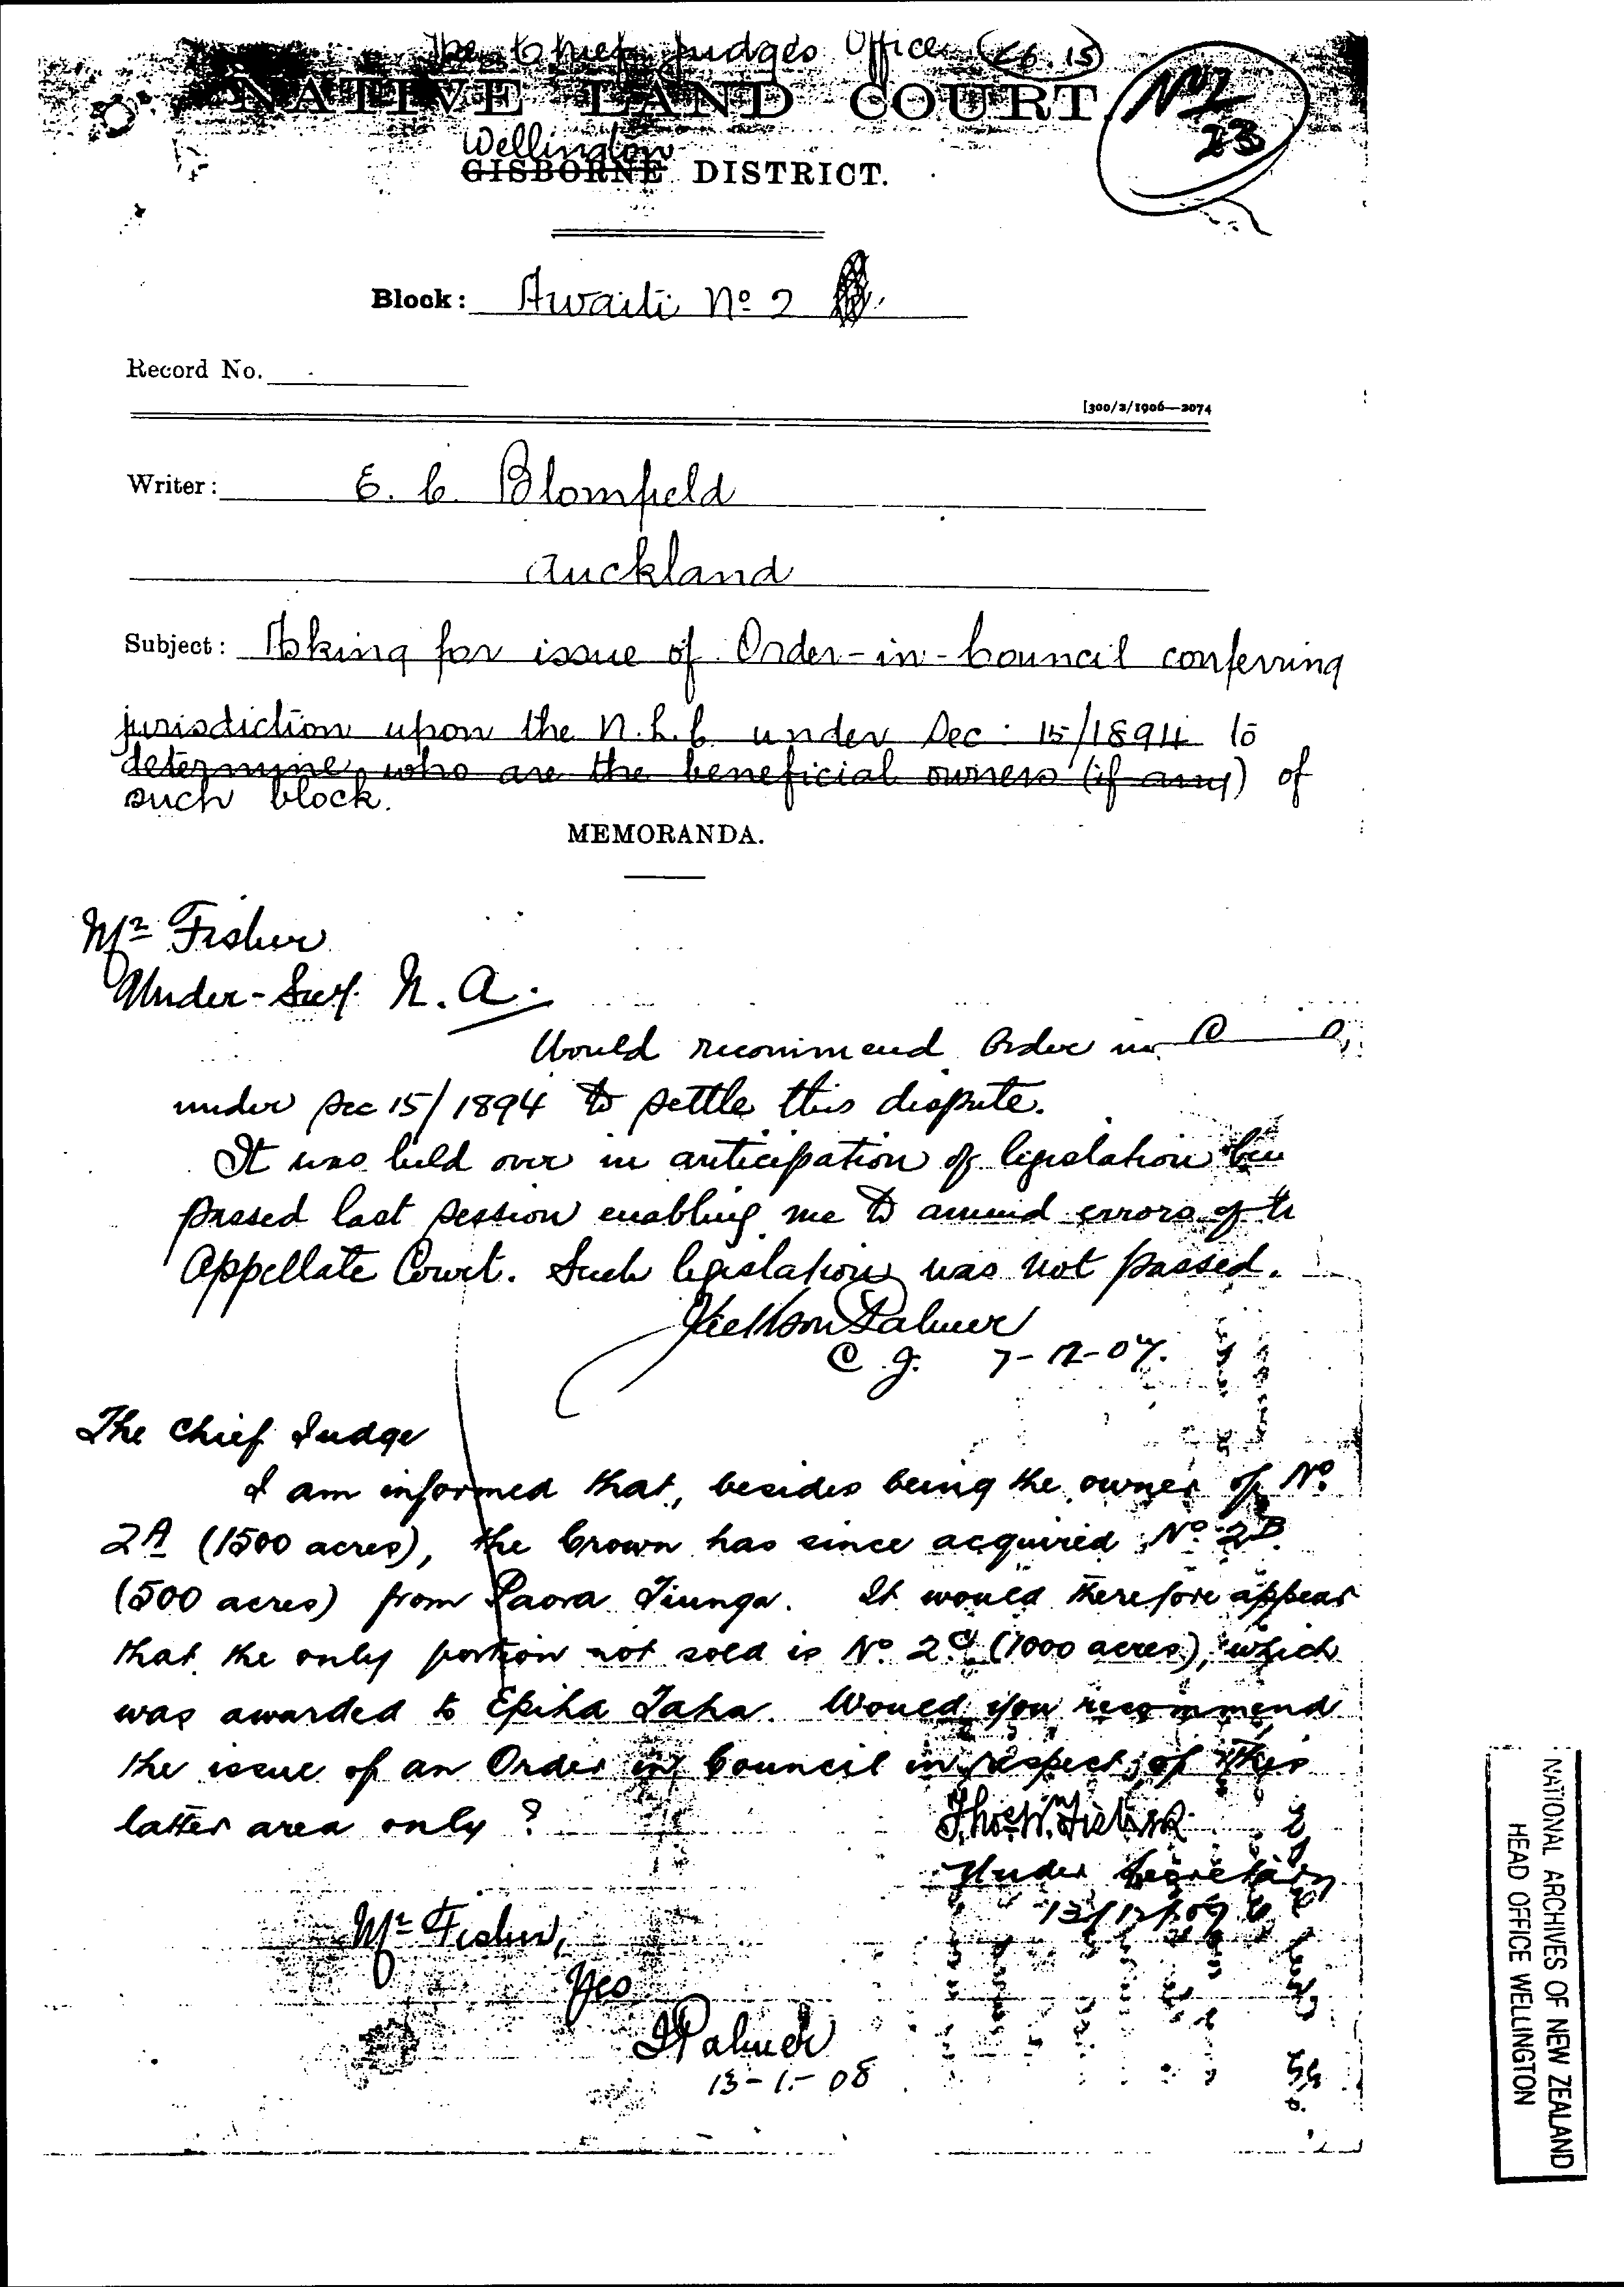 The Chief Judges Office
NATIVE LAND COURT
Wellington
GISBORNE DISTRICT.
Block: Awaiti No 2
Record No.
[300/2/1906—2074
Writer: E. C. Blomfield
Auckland
Subject: Asking for issue of Order-in-Council conferring
jurisdiction upon the N.L.C. under Sec: 15/1894 to
determine who are the beneficial owners (if any) of
such block.
MEMORANDA.
Mr Fisher
Under-Secy. N. A.
Would recommend Order in C
under sec 15/1894 to settle this dispute.
It was held over in anticipation of legislation
passed last session enabling me to amend errors of
Appellate Court. Such legislation was not passed.
Jackson Palmer
C. J. 7-12-07.
The Chief Judge
I am informed that, besides being the owner of No.
2A (1500 acres), the Crown has since acquired No. 2B
(500 acres) from Paora Tiunga. It would therefore appear
that the only portion not sold is No 2C (1000 acres), which
was awarded to Epiha Taha. Would you recommend
the issue of an Order in Council in respect of this
latter area only?
Thos W. Fisher
Under Secretary
13/12/07
Mr Fisher,
Yes
JPalmer
13-1-08
NATIONAL ARCHIVES OF NEW ZEALAND
HEAD OFFICE WELLINGTON